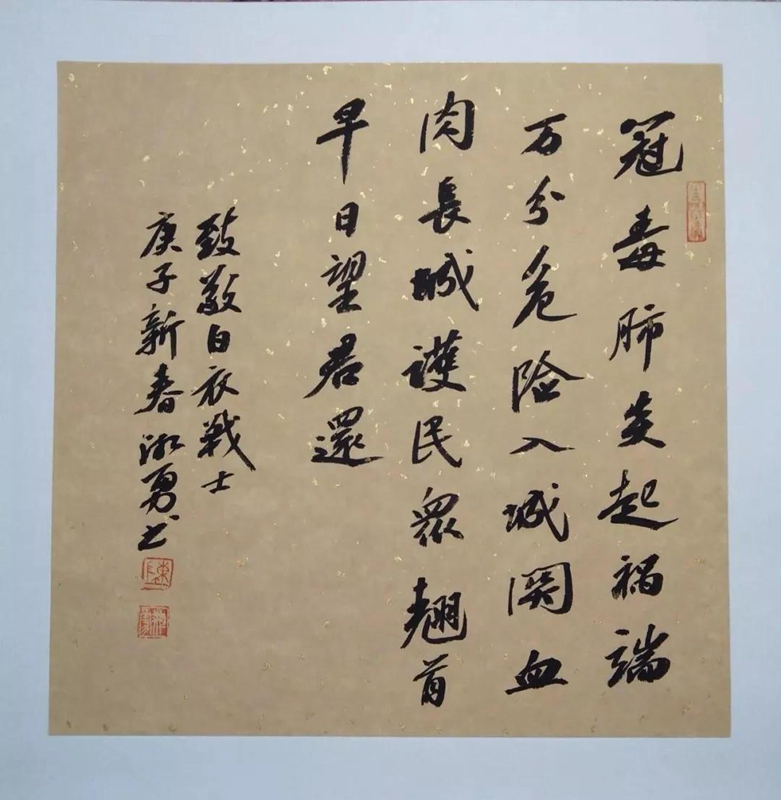 冠毒肺炎起禍端
万分危险入城関血
肉長城護民眾翹首
早日望君還
致敬白衣戰士
庚子新春泳勇书